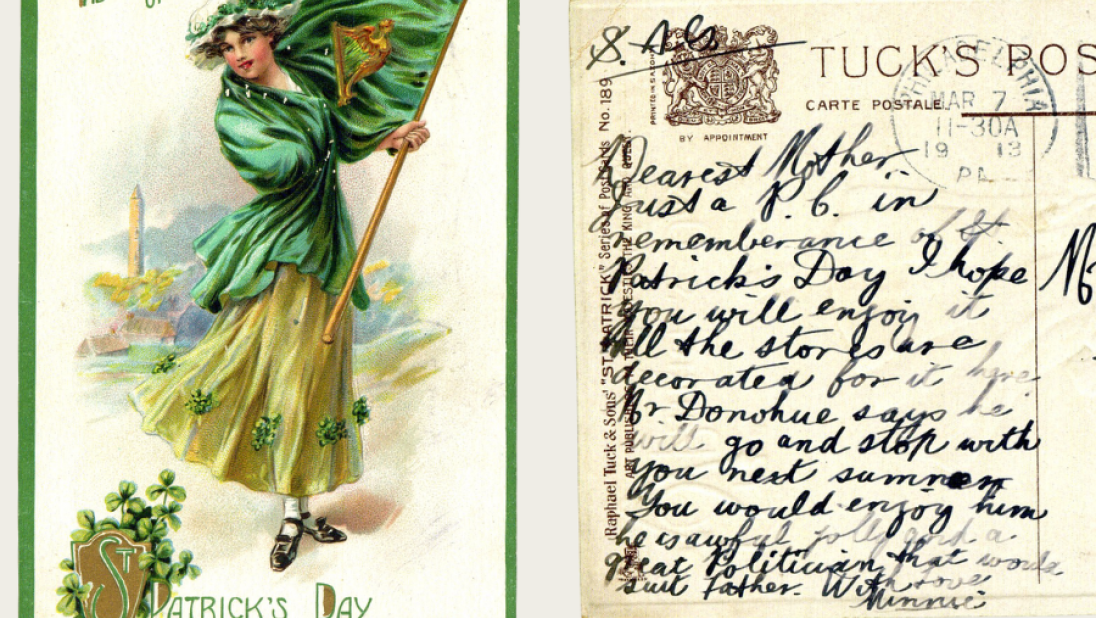 ST PATRICK'S DAY
S. A. S.
TUCK'S POS
CARTE POSTALE
BY APPOINTMENT
PRINTED IN SAXONY
PHILADELPHIA
MAR 7
11-30A
19 13
PA
Raphael Tuck & Sons' "ST PATRICK" Series of Post Cards No. 189
Dearest Mother
Just a P. C. in
rememberance of St.
Patrick's Day I hope
you will enjoy it
All the stores are
decorated for it here
Mr Donohue says he
will go and stop with
you next summer
You would enjoy him
he is awful jolly and a
great Politician that would
suit Father. With love
Minnie